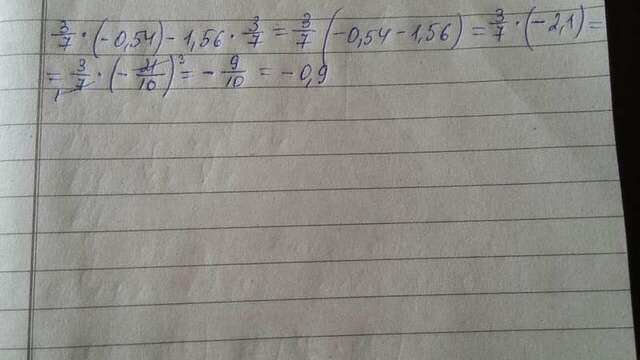 3/7 · (-0,54) - 1,56 · 3/7 = 3/7 (-0,54 - 1,56) = 3/7 · (-2,1) =
= 3/7 1 · (- 21/10) 3 = - 9/10 = -0,9